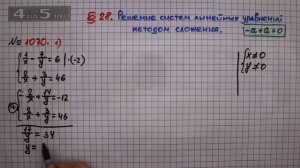 4.5
§ 28. Решение систем линейных уравнений
методом сложения.
-a+a=0
№ 1070. 1)
1/x - 7/y = 6 |·(-2)
2/x + 3/y = 46
x≠0
y≠0
-2/x + 14/y = -12
2/x + 3/y = 46
17/y = 34
y =